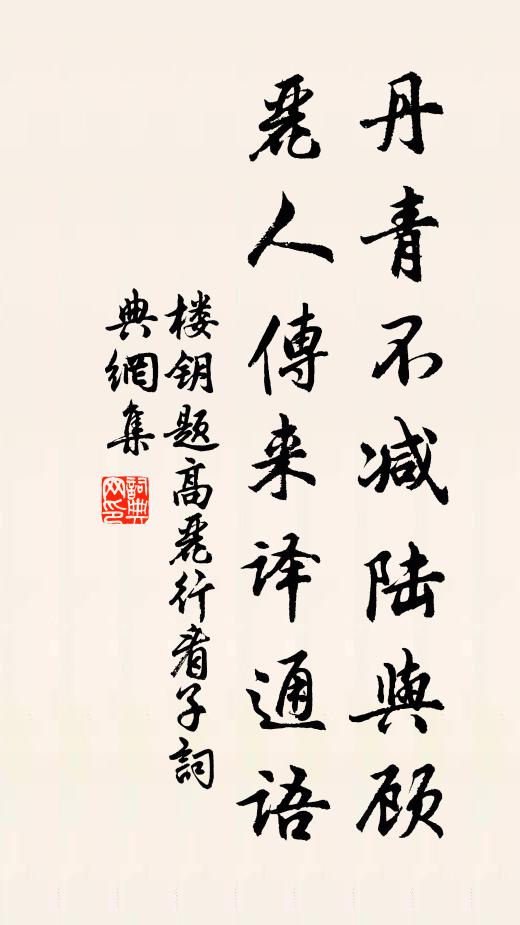 丹青不减陆與顾
麗人傳来译通语
楼钥题高麗行看子詞
典網集
詞典
网印